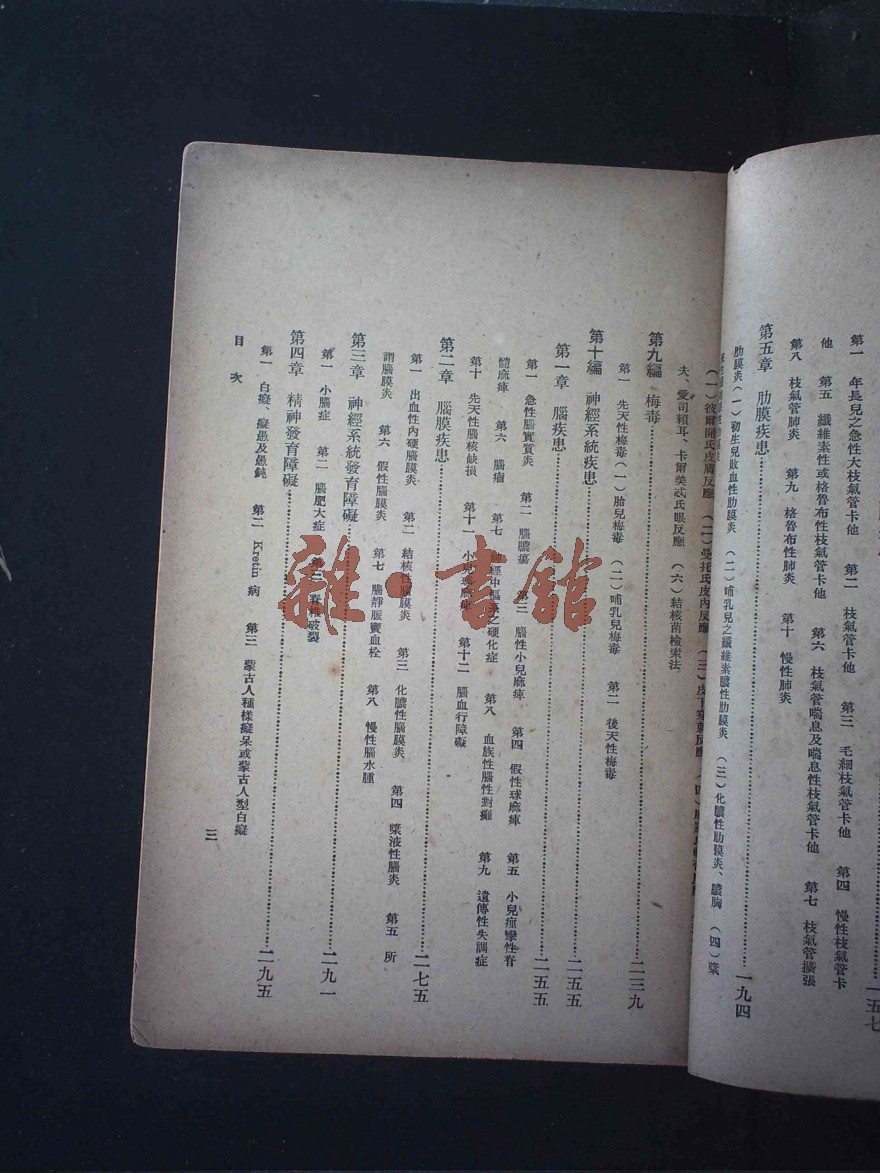 第一　年長兒之急性大枝氣管卡他　第二　枝氣管卡他　第三　毛細枝氣管卡他　第四　慢性枝氣管卡
他　第五　纖維素性或格魯布性枝氣管卡他　第六　枝氣管喘息及喘息性枝氣管卡他　第七　枝氣管擴張
第八　枝氣管肺炎　第九　格魯布性肺炎　第十　慢性肺炎
第五章　肋膜疾患……一九四
肋膜炎（一）初生兒敗血性肋膜炎　（二）哺乳兒之纖維素膿性肋膜炎　（三）化膿性肋膜炎、膿胸　（四）漿
（一）彼爾開氏皮膚反應　（二）曼托氏皮內反應
夫、愛司賴耳、卡爾美忒氏眼反應　（六）結核菌檢索法
第九編　梅毒……二三九
第一　先天性梅毒（一）胎兒梅毒　（二）哺乳兒梅毒　第二　後天性梅毒
第十編　神經系統疾患……二五五
第一章　腦疾患……二五五
第一　急性腦實質炎　第二　腦膿瘍　第三　腦性小兒麻痺　第四　假性球麻痺　第五　小兒痙攣性脊
髓麻痺　第六　腦瘤　第七　神經中樞系之硬化症　第八　血族性腦性對癱　第九　遺傳性失調症
第十　先天性腦核缺損　第十一　小兒舞麻痺　第十二　腦血行障礙
第二章　腦膜疾患……二七五
第一　出血性內硬腦膜炎　第二　結核性腦膜炎　第三　化膿性腦膜炎　第四　漿液性腦炎　第五　所
謂腦膜炎　第六　假性腦膜炎　第七　腦靜脈竇血栓　第八　慢性腦水腫
第三章　神經系統發育障礙……二九一
第一　小腦症　第二　腦肥大症　第三　脊椎破裂
第四章　精神發育障礙……二九五
第一　白癡、癡愚及愚鈍　第二　Kretin 病　第三　蒙古人種樣癡呆或蒙古人型白癡
目次
三
雜·書館